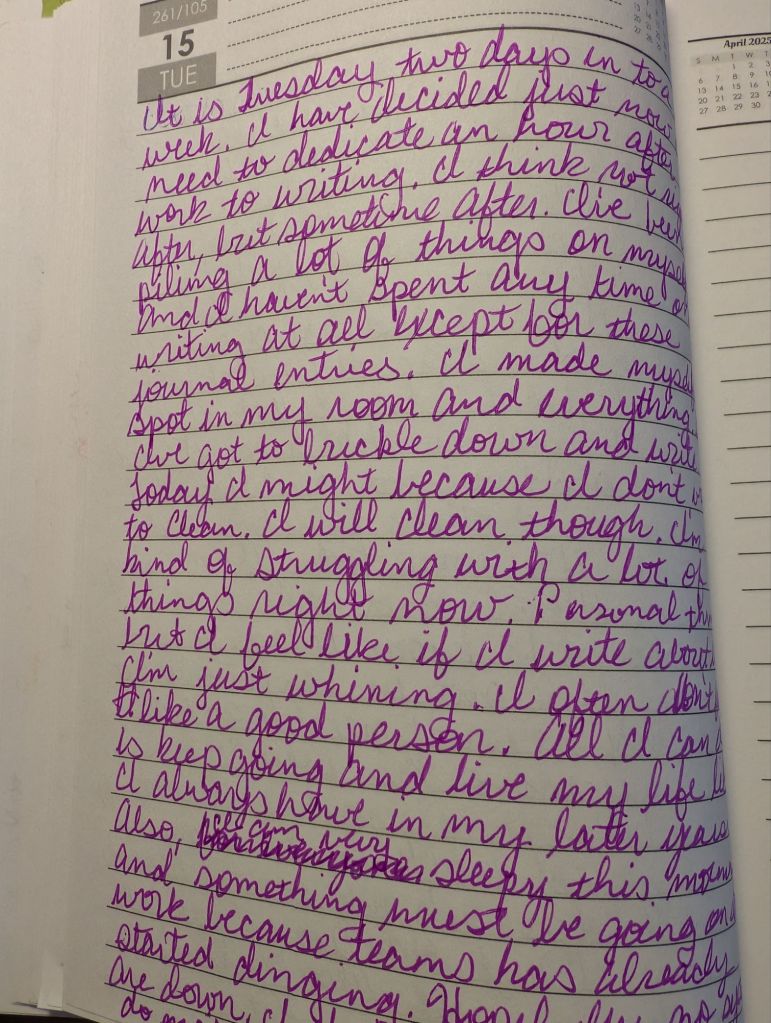 261/105
15
TUE
April 2025
S M T W T
1 2 3
6 7 8 9 10
13 14 15 16 17
20 21 22 23 24
27 28 29 30
It is Tuesday, two days in to a
week. I have decided just now
need to dedicate an hour after
work to writing. I think not
after, but sometime after. I've
piling a lot of things on
and I haven't spent any time
writing at all except for these
journal entries. I made
spot in my room and everything.
I've got to buckle down and write
Today I might because I don't
to clean. I will clean though. I'm
kind of struggling with a lot of
things right now. Personal
but I feel like if I write about
I'm just whining. I often don't
like a good person. All I can
is keep going and live my life
I always have in my later years
Also, I am very
sleepy this
and something must be going on
work because teams has already
started dinging.
are down.
do